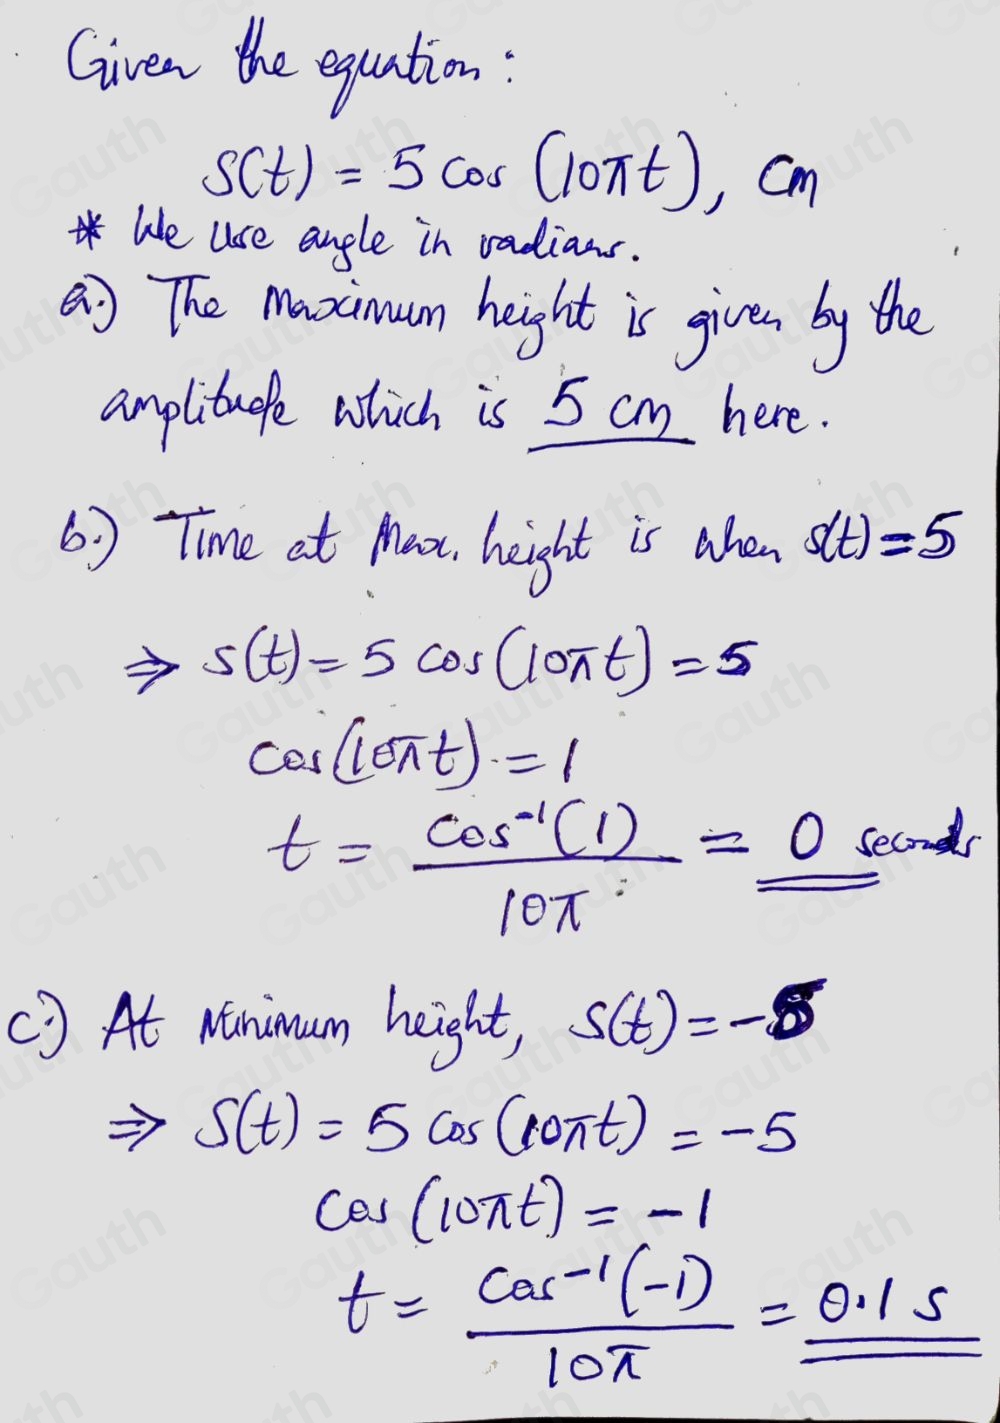 Given the equation:
S(t) = 5 cos (10πt), cm
* We use angle in radians.
a.) The Maximum height is given by the
amplitude which is 5 cm here.
b.) Time at Max. height is when s(t) = 5
⇒ s(t) = 5 cos (10πt) = 5
cos (10πt) = 1
t = cos⁻¹(1) / 10π = 0 seconds
c.) At Minimum height, S(t) = -5
⇒ S(t) = 5 cos (10πt) = -5
cos (10πt) = -1
t = cos⁻¹(-1) / 10π = 0.1 s